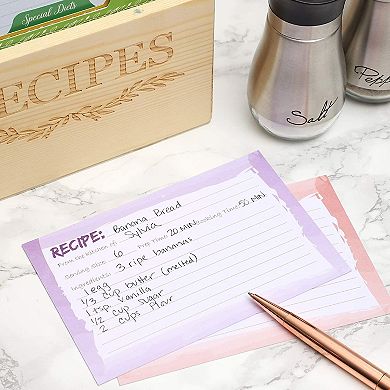 Special Diets
RECIPES
Salt
Pepp
RECIPE: Banana Bread
From the kitchen of: Sylvia
Serving size: 6 Prep Time: 20 Min Cooking Time: 50 Min.
Ingredients: 3 ripe bananas
1 egg
1/3 cup butter (melted)
1 tsp. vanilla
1/2 cup sugar
2 cups flour